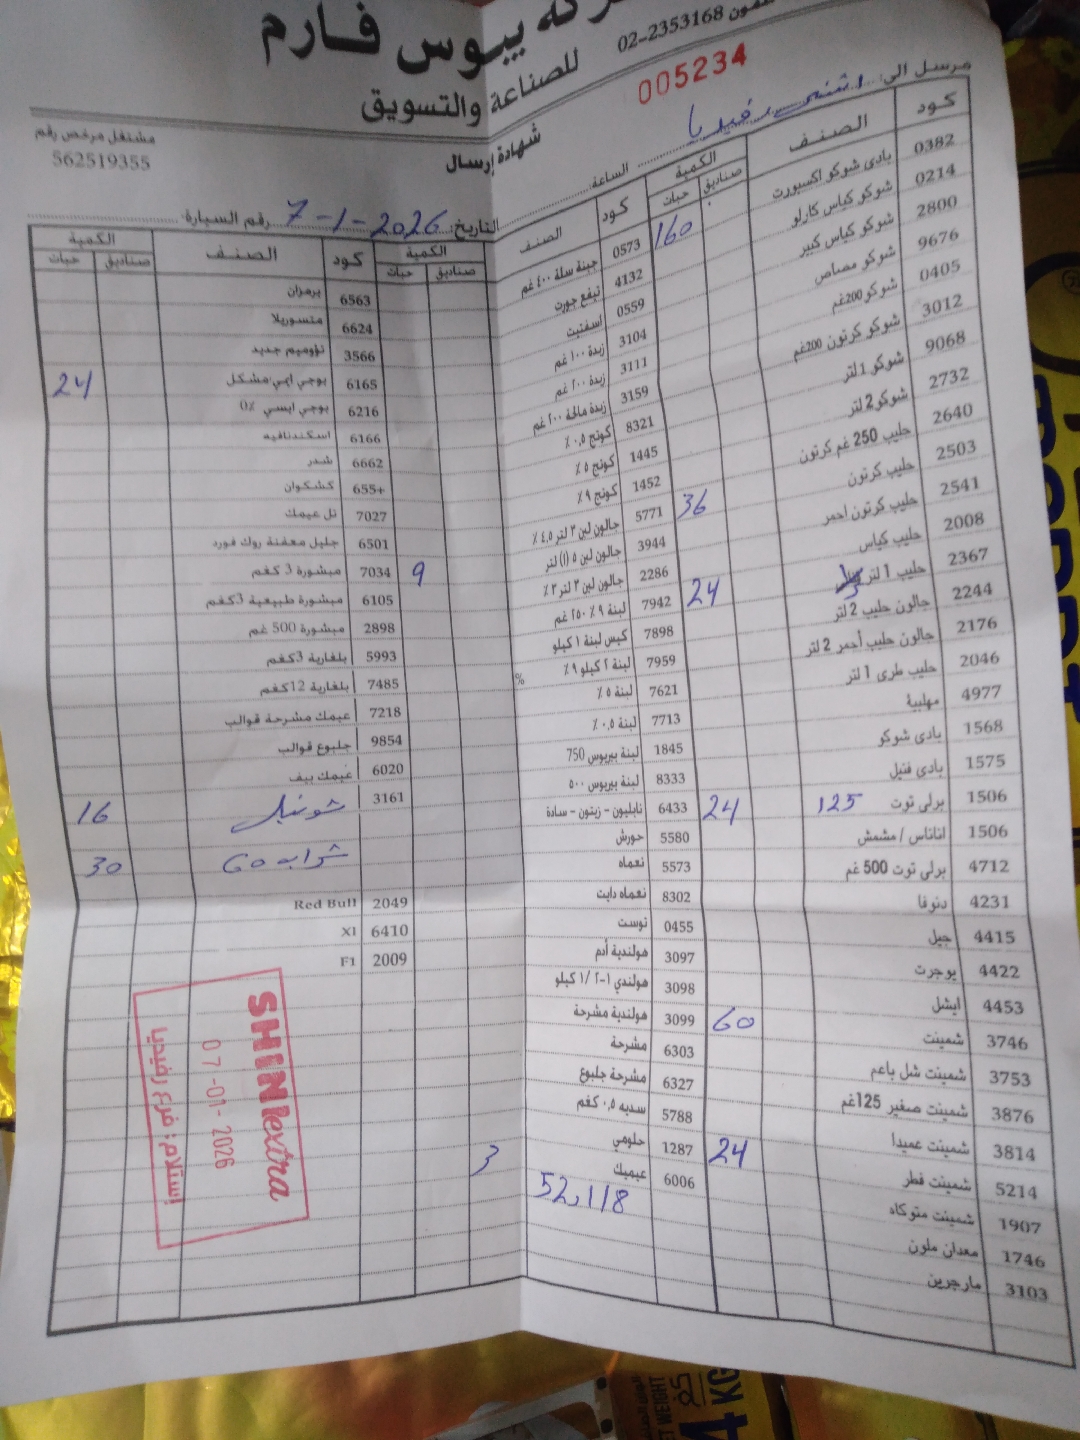 شركة يبوس فارم
للصناعة والتسويق
02-2353168
005234
مشتغل مرخص رقم
562519355
شهادة إرسال
مرسل الى:
الساعة:
التاريخ: 7-1-2026 رقم السيارة:
كود الصنف الكمية صناديق حبات
0382 بادي شوكو اكسبورت 160
0214 شوكو كياس كارلو
2800 شوكو كياس كبير
9676 شوكو مصاص
0405 شوكو 200غم
3012 شوكو كرتون 200غم
9068 شوكو 1 لتر
2732 شوكو 2 لتر
2640 حليب 250 غم كرتون
2503 حليب كرتون 36
2541 حليب كرتون احمر
2008 حليب كياس
2367 حليب 1 لتر 24
2244 جالون حليب 2 لتر
2176 جالون حليب أحمر 2 لتر
2046 حليب طري 1 لتر
4977 مهلبية
1568 بادي شوكو
1575 بادي فنيل
1506 برلي توت 125 24
1506 اناناس / مشمش
4712 برلي توت 500 غم
4231 دنوفا
4415 جيل
4422 يوجرت
4453 ايشل
3746 شمينت 60
3753 شمينت شل باعم
3876 شمينت صغير 125غم
3814 شمينت عميدا
5214 شمينت فطر 24
1907 شمينت متوكاه
1746 معدان ملون
3103 مارجرين
كود الصنف الكمية صناديق حبات
0573 جبنة سلة ٤٠٠ غم
4132 نيفع جورت
0559 اسفتيت
3104 زبدة ١٠٠ غم
3111 زبدة ٢٠٠ غم
3159 زبدة مالحة ٢٠٠ غم
8321 كوتج ٠,٥ ٪
1445 كوتج ٥ ٪
1452 كوتج ٩ ٪
5771 جالون لبن ٣ لتر ٤,٥ ٪
3944 جالون لبن ٥ (١) لتر
2286 جالون لبن ٣ لتر ٣ ٪ 9
7942 لبنة ٩ ٪ ٢٥٠ غم
7898 كيس لبنة ١ كيلو
7959 لبنة ٢ كيلو ٩ ٪
%
7621 لبنة ٥ ٪
7713 لبنة ٠,٥ ٪
1845 لبنة بيريوس 750
8333 لبنة بيريوس ٥٠٠
6433 نابليون - زيتون - سادة
5580 حورش
5573 نعماه
8302 نعماه دايت
0455 توست
3097 هولندية أدم
3098 هولندي ١-٢ /١ كيلو
3099 هولندية مشرحة
6303 مشرحة
6327 مشرحة جلبوع
5788 سدبه ٠,٥ كغم
1287 حلومي
6006 عيميك 3
52,118
كود الصنف الكمية صناديق حبات
6563 برمزان
6624 متسوريلا
3566 نؤوميم جديد
6165 يوجي ايسي مشكل 24
6216 يوجي ايسي ٪0
6166 اسكندنافيه
6662 شدر
655+ كشكوان
7027 تل عيمك
6501 جليل معفنة روك فورد
7034 مبشورة 3 كغم
6105 مبشورة طبيعية 3كغم
2898 مبشورة 500 غم
5993 بلغارية 3كغم
7485 بلغارية 12كغم
7218 عيمك مشرحة قوالب
9854 جلبوع قوالب
6020 عيمك بيف
3161 16
60 30
2049 Red Bull
6410 Xl
2009 F1
SHINI extra
07-01-2026
إستلام: فرع رفيديا